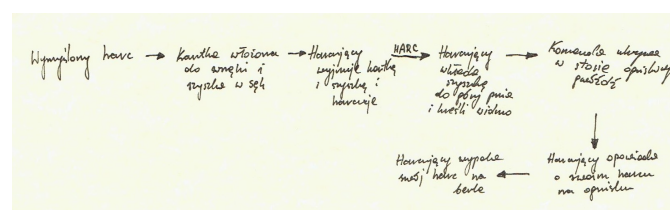 Wymyślony harc → Kartka włożona
do wnęki i
szyszka w sęk
→ Harcujący
wyjmuje kartkę
i szyszkę i
harcuje
HARC
→ Harcujący
wkłada
szyszkę
do góry pnia
i kreśli widmo
→ Komenda ukrywa
w stosie ogniskowym
↓
Harcujący opowiada
o swoim harcu
na ognisku
← Harcujący wypala
swój harc na
berle